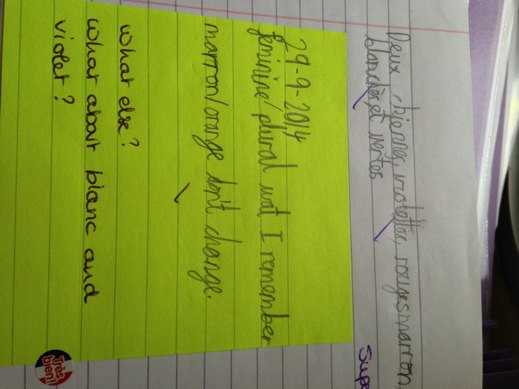 Deux chiennes, violettes, rouges marron,
blanches et vertes
Supe
29-9-2014
feminine/plural wot I remember
marron/orange don't change.
what else?
what about blanc and
violet?
Très
bien!!